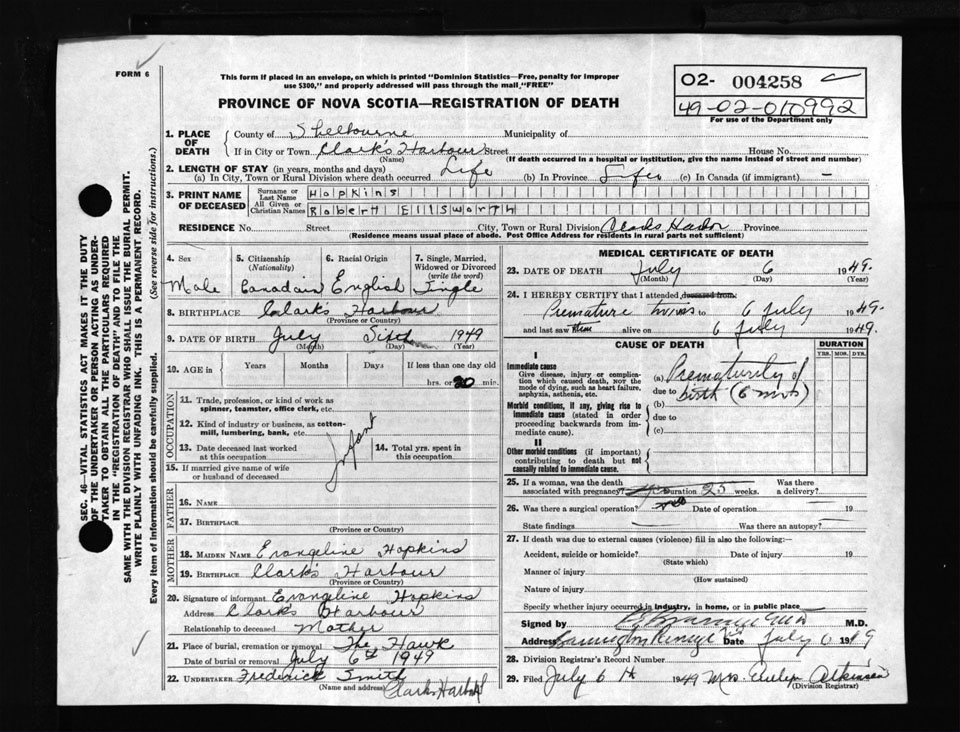 FORM 6
This form if placed in an envelope, on which is printed "Dominion Statistics—Free, penalty for improper
use $300," and properly addressed will pass through the mail "FREE"
PROVINCE OF NOVA SCOTIA—REGISTRATION OF DEATH
02- 004258
49-02-010992
For use of the Department only
1. PLACE OF DEATH
County of Shelbourne Municipality of
If in City or Town Clark's Harbour Street House No.
(Name) (If death occurred in a hospital or institution, give the name instead of street and number)
2. LENGTH OF STAY (in years, months and days)
(a) In City, Town or Rural Division where death occurred Life (b) In Province Life (c) In Canada (if immigrant) -
3. PRINT NAME OF DECEASED
Surname or Last Name Hopkins
All Given or Christian Names Robert Ellsworth
RESIDENCE No. Street City, Town or Rural Division Clarks Harbor Province
(Residence means usual place of abode. Post Office Address for residents in rural parts not sufficient)
4. Sex Male
5. Citizenship (Nationality) Canadain
6. Racial Origin English
7. Single, Married, Widowed or Divorced (write the word) Single
8. BIRTHPLACE Clark's Harbour
(Province or Country)
9. DATE OF BIRTH July Sixth 1949
(Month) (Day) (Year)
10. AGE in Years Months Days If less than one day old
hrs. or 20 min.
OCCUPATION
11. Trade, profession, or kind of work as
spinner, teamster, office clerk, etc.
12. Kind of industry or business, as cotton-
mill, lumbering, bank, etc.
Infant
13. Date deceased last worked
at this occupation
14. Total yrs. spent in
this occupation
15. If married give name of wife
or husband of deceased
FATHER
16. Name
17. Birthplace
(Province or Country)
MOTHER
18. Maiden Name Evangeline Hopkins
19. Birthplace Clark's Harbour
(Province or Country)
20. Signature of informant Evangeline Hopkins
Address Clark's Harbour
Relationship to deceased Mother
21. Place of burial, cremation or removal The Hawk
Date of burial or removal July 6th 1949
22. UNDERTAKER Frederick Smith
(Name and address) Clarks Harbour
MEDICAL CERTIFICATE OF DEATH
23. DATE OF DEATH July 6 1949.
(Month) (Day) (Year)
24. I HEREBY CERTIFY that I attended deceased from:
Premature twins to 6 July 1949.
and last saw them alive on 6 July 1949.
CAUSE OF DEATH DURATION
YRS. MOS. DYS.
I
Immediate cause
Give disease, injury or complica-
tion which caused death, NOT the
mode of dying, such as heart failure,
asphyxia, asthenia, etc.
(a) Prematurity of
due to birth (6 mos)
Morbid conditions, if any, giving rise to
immediate cause (stated in order
proceeding backwards from im-
mediate cause).
(b)
due to
(c)
II
Other morbid conditions (if important)
contributing to death but not
causally related to immediate cause.
25. If a woman, was the death
associated with pregnancy? Duration 25 weeks. Was there
a delivery?
26. Was there a surgical operation? Date of operation 19
State findings Was there an autopsy?
27. If death was due to external causes (violence) fill in also the following:—
Accident, suicide or homicide? Date of injury 19
(State which)
Manner of injury
(How sustained)
Nature of injury
Specify whether injury occurred in industry, in home, or in public place
Signed by M.D.
Address Date July 6 1949
28. Division Registrar's Record Number
29. Filed July 6th 1949 Mrs. Evelyn Atkinson
(Division Registrar)
SEC. 46—VITAL STATISTICS ACT MAKES IT THE DUTY
OF THE UNDERTAKER OR PERSON ACTING AS UNDER-
TAKER TO OBTAIN ALL THE PARTICULARS REQUIRED
IN THE "REGISTRATION OF DEATH" AND TO FILE THE
SAME WITH THE DIVISION REGISTRAR WHO SHALL ISSUE THE BURIAL PERMIT.
WRITE PLAINLY WITH UNFADING INK. THIS IS A PERMANENT RECORD.
Every item of information should be carefully supplied. (See reverse side for instructions.)